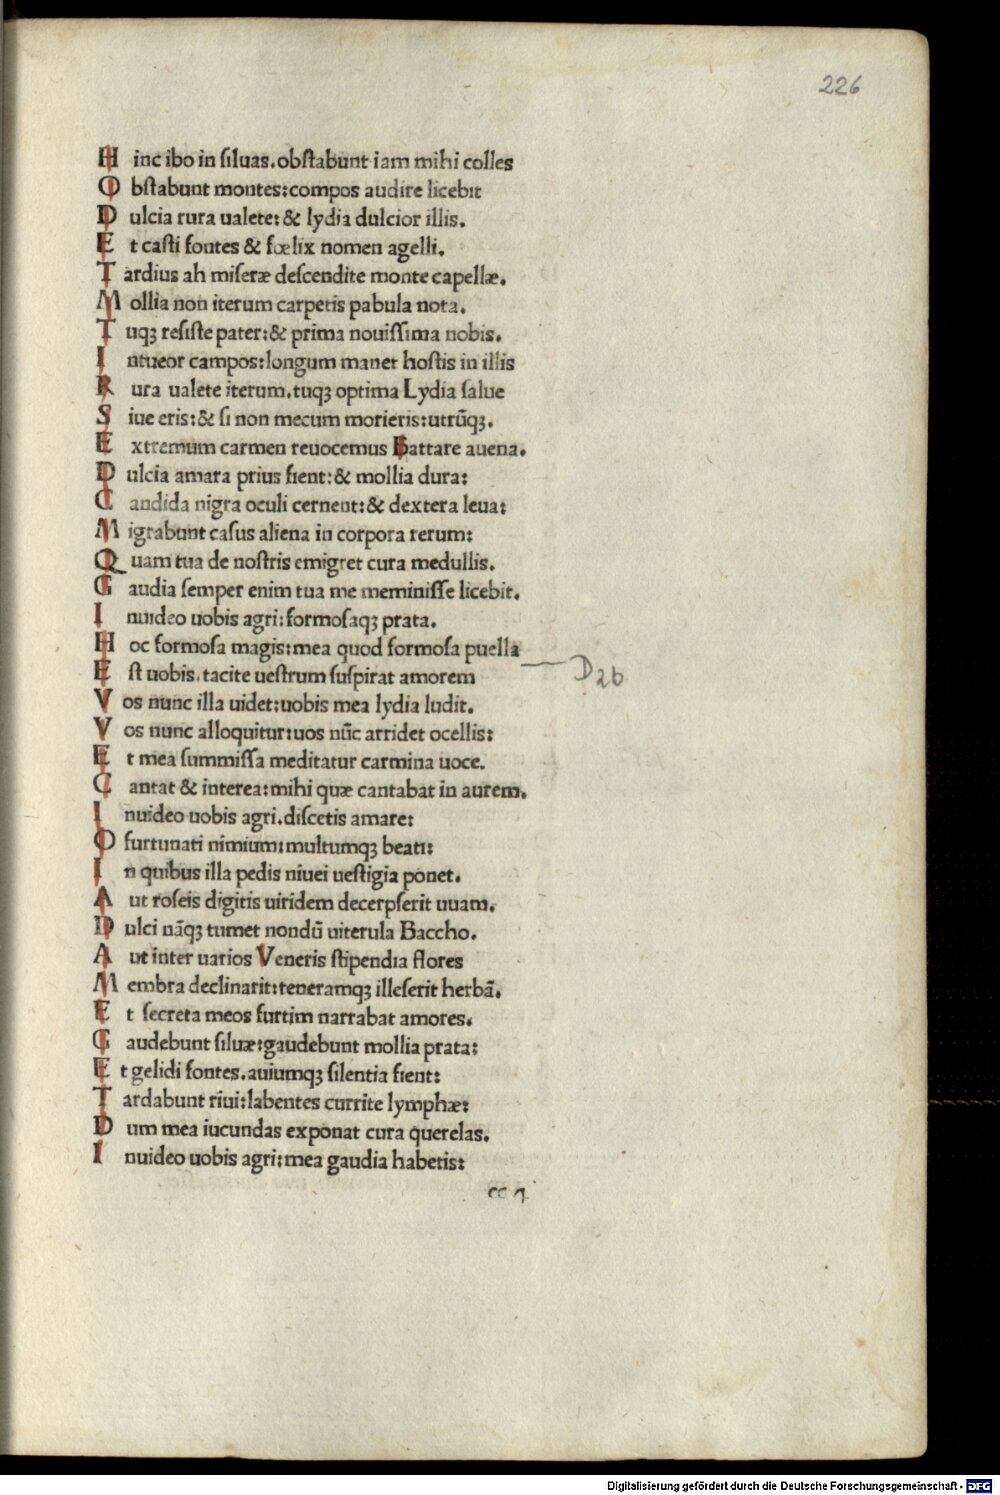 226
H inc ibo in ſiluas.obſtabunt iam mihi colles
O bſtabunt montes:compos audire licebit
D ulcia rura ualete:& lydia dulcior illis.
E t caſti fontes & fœlix nomen agelli.
T ardius ah miſeræ deſcendite monte capellæ.
M ollia non iterum carpetis pabula nota.
T uqꝫ reſiſte pater:& prima nouiſſima nobis.
I ntueor campos:longum manet hoſtis in illis
R ura ualete iterum.tuqꝫ optima Lydia ſalue
S iue eris:& ſi non mecum morieris:utrūqꝫ.
E xtremum carmen reuocemus Battare auena.
D ulcia amara prius fient:& mollia dura:
C andida nigra oculi cernent:& dextera leua:
M igrabunt caſus aliena in corpora rerum:
Q uam tua de noſtris emigret cura medullis.
G audia ſemper enim tua me meminiſſe licebit.
I nuideo uobis agri:formoſaqꝫ prata.
H oc formoſa magis:mea quod formoſa puella
E ſt uobis.tacite ueſtrum ſuſpirat amorem
D2b
V os nunc illa uidet:uobis mea lydia ludit.
V os nunc alloquitur:uos nūc arridet ocellis:
E t mea ſummiſſa meditatur carmina uoce.
C antat & interea:mihi quæ cantabat in aurem.
I nuideo uobis agri.diſcetis amare:
O furtunati nimium:multumqꝫ beati:
I n quibus illa pedis niuei ueſtigia ponet.
A ut roſeis digitis uiridem decerpſerit uuam.
D ulci nāqꝫ tumet nondū uiterula Baccho.
A ut inter uarios Veneris ſtipendia flores
M embra declinarit:teneramqꝫ illeſerit herbā.
E t ſecreta meos furtim narrabat amores.
G audebunt ſiluæ:gaudebunt mollia prata:
E t gelidi fontes.auiumqꝫ ſilentia fient:
T ardabunt riui:labentes currite lymphæ:
D um mea iucundas exponat cura querelas.
I nuideo uobis agri:mea gaudia habetis:
Digitalisierung gefördert durch die Deutsche Forschungsgemeinschaft - DFG